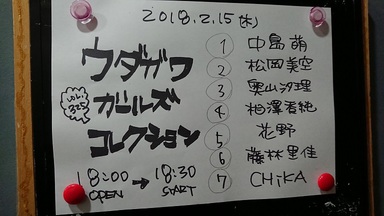 2018.2.15(木)
ウダガワ
ガールズ
コレクション
vol.
325
18:00 → 18:30
OPEN START
① 中島萌
② 松岡美空
③ 奥山汐理
④ 相澤香純
⑤ 花野
⑥ 藤林里佳
⑦ CHiKA